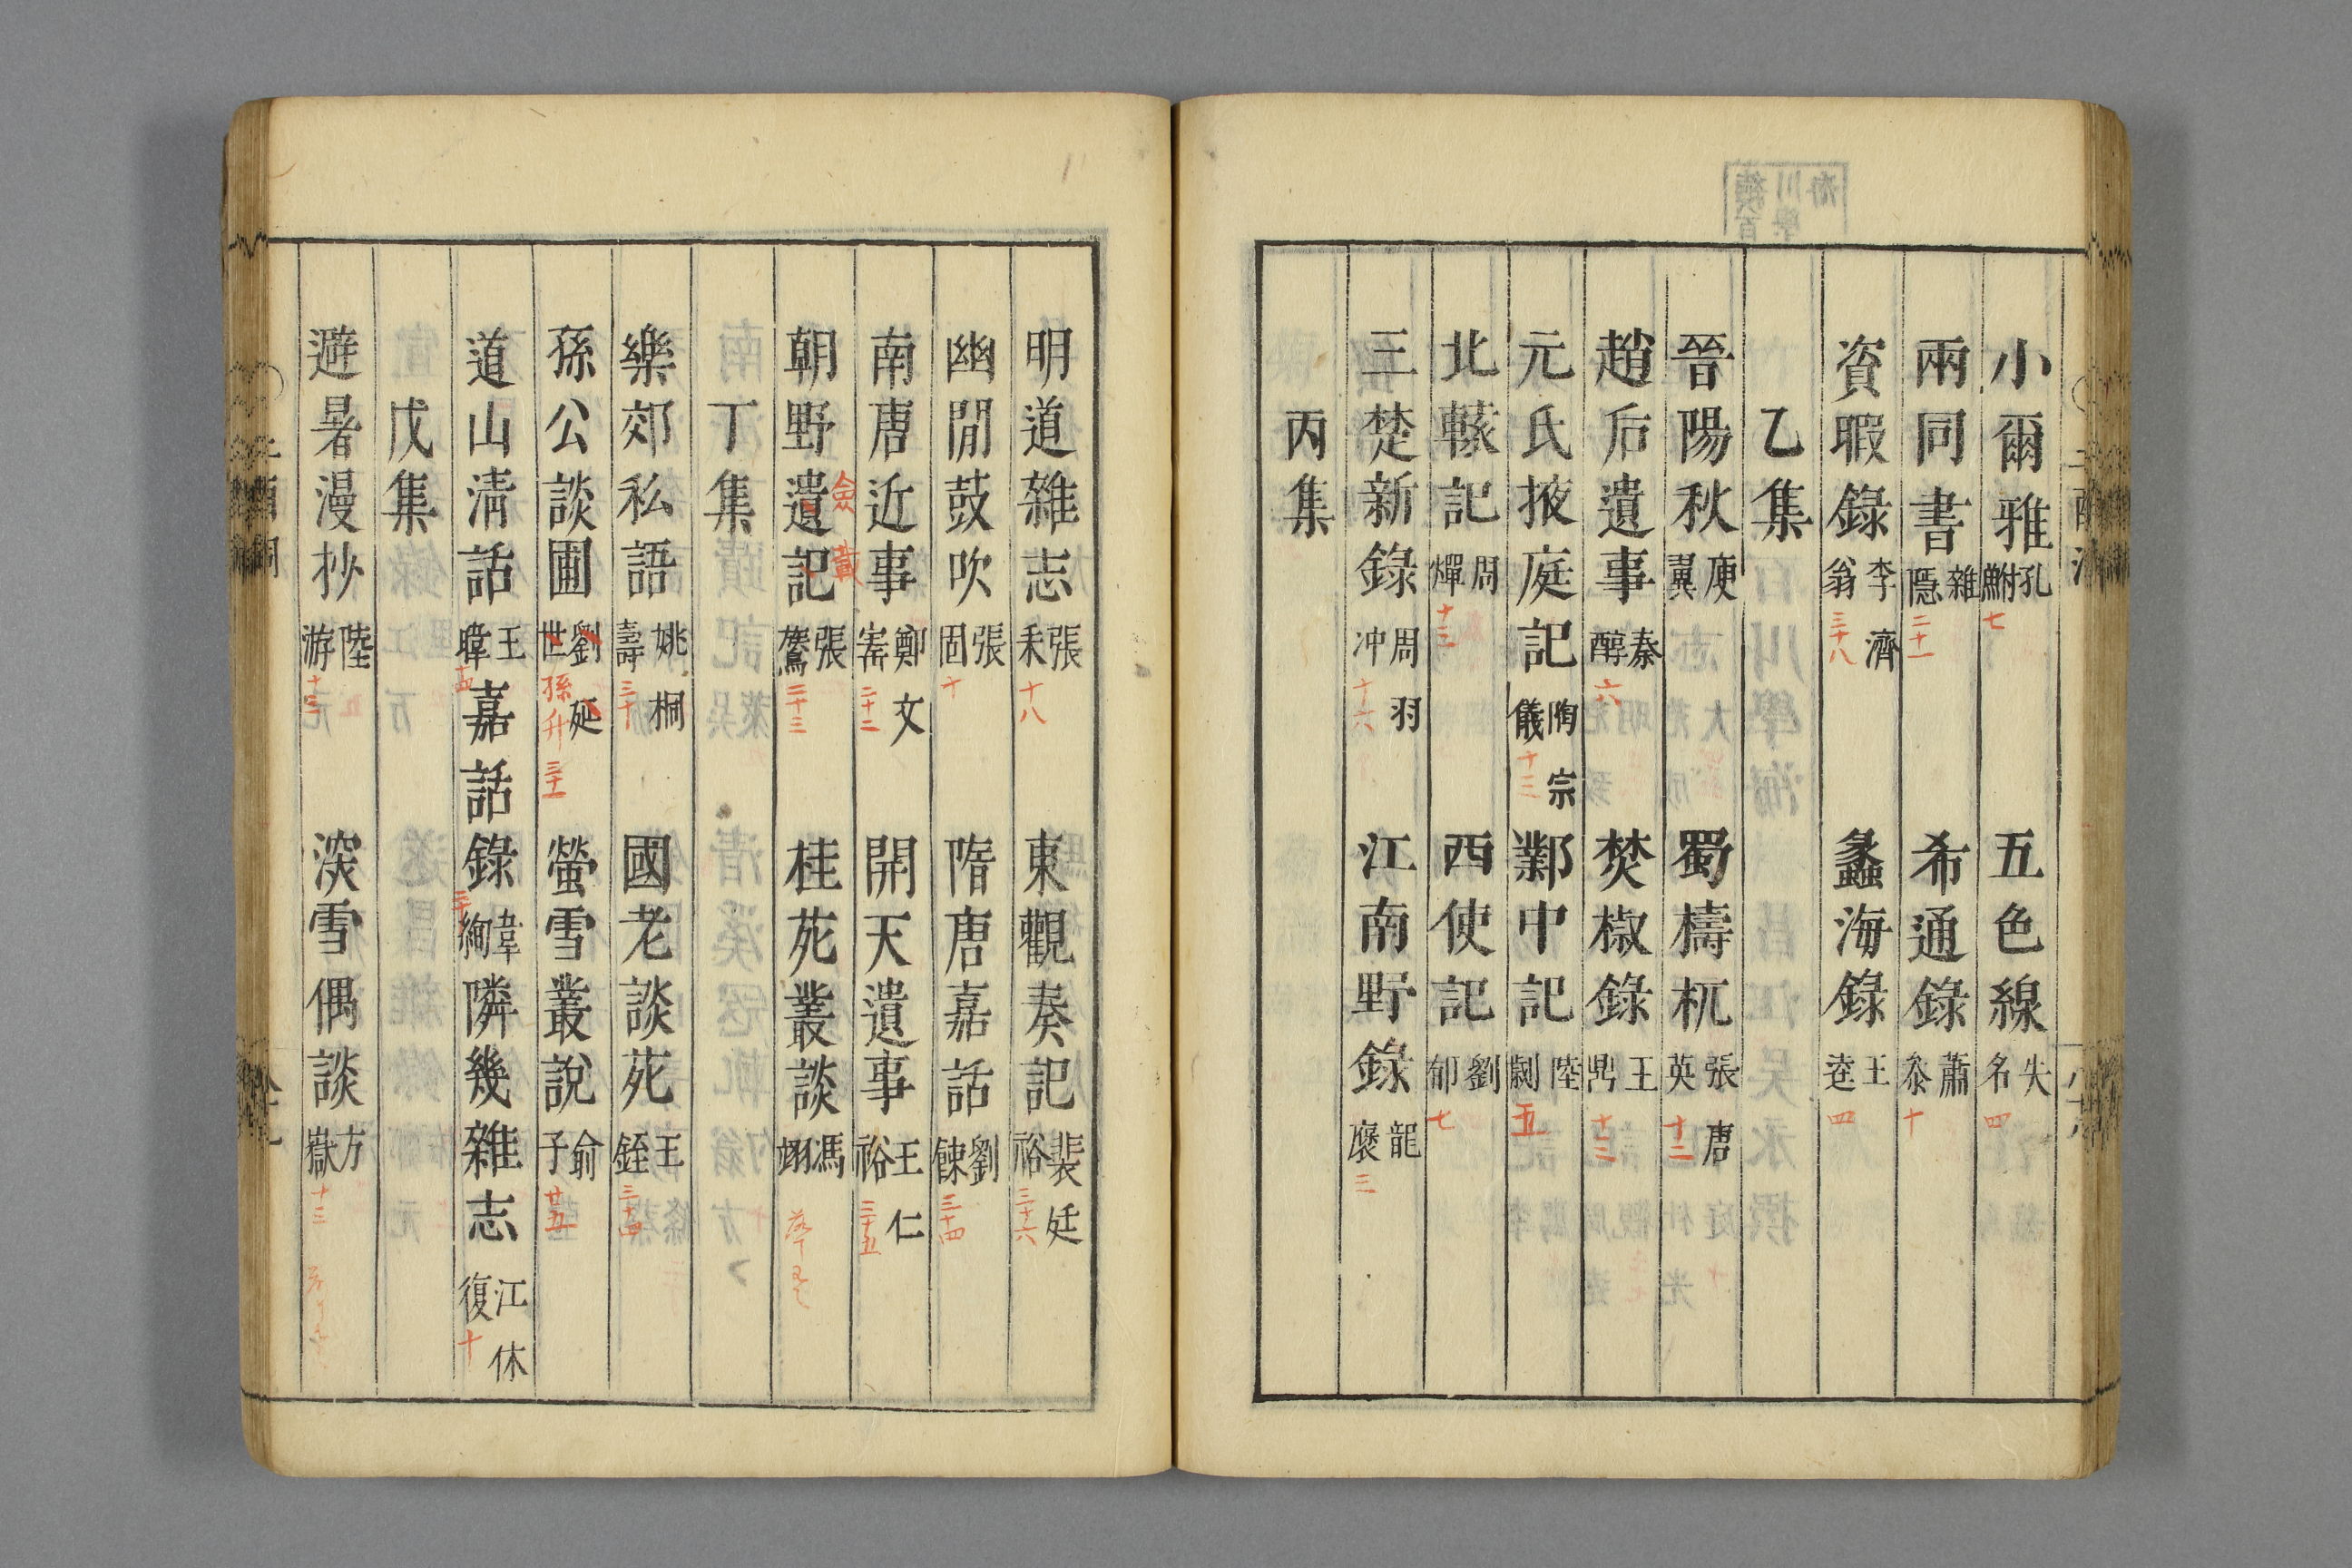 小爾雅 孔鮒 七 五色線 失名 四
兩同書 羅隱 二十一 希通錄 蕭參 十
資暇錄 李濟翁 三十八 蠡海錄 王逵 四
乙集
晉陽秋 庾翼 蜀檮杌 張唐英 十二
趙后遺事 秦醇 六 焚椒錄 王鼎 十三
元氏掖庭記 陶宗儀 十三 鄴中記 陸翽 五
北轅記 周煇 十三 西使記 劉郁 七
三楚新錄 周羽冲 十六 江南野錄 龍褒 三
丙集
明道雜志 張耒 十八 東觀奏記 裴廷裕 三十六
幽閒鼓吹 張固 十 隋唐嘉話 劉餗 三十四
南唐近事 鄭文寶 二十二 開天遺事 王仁裕 三十五
朝野遺記 僉載 張鷟 二十三 桂苑叢談 馮翊
丁集
樂郊私語 姚桐壽 三十 國老談苑 王銍 三十四
孫公談圃 劉延世 孫升 三十一 螢雪叢說 俞子 廿五
道山清話 王暐 嘉話錄 韋絢 隣幾雜志 江休復 十
戊集
避暑漫抄 陸游 十三 深雪偶談 方嶽 十三